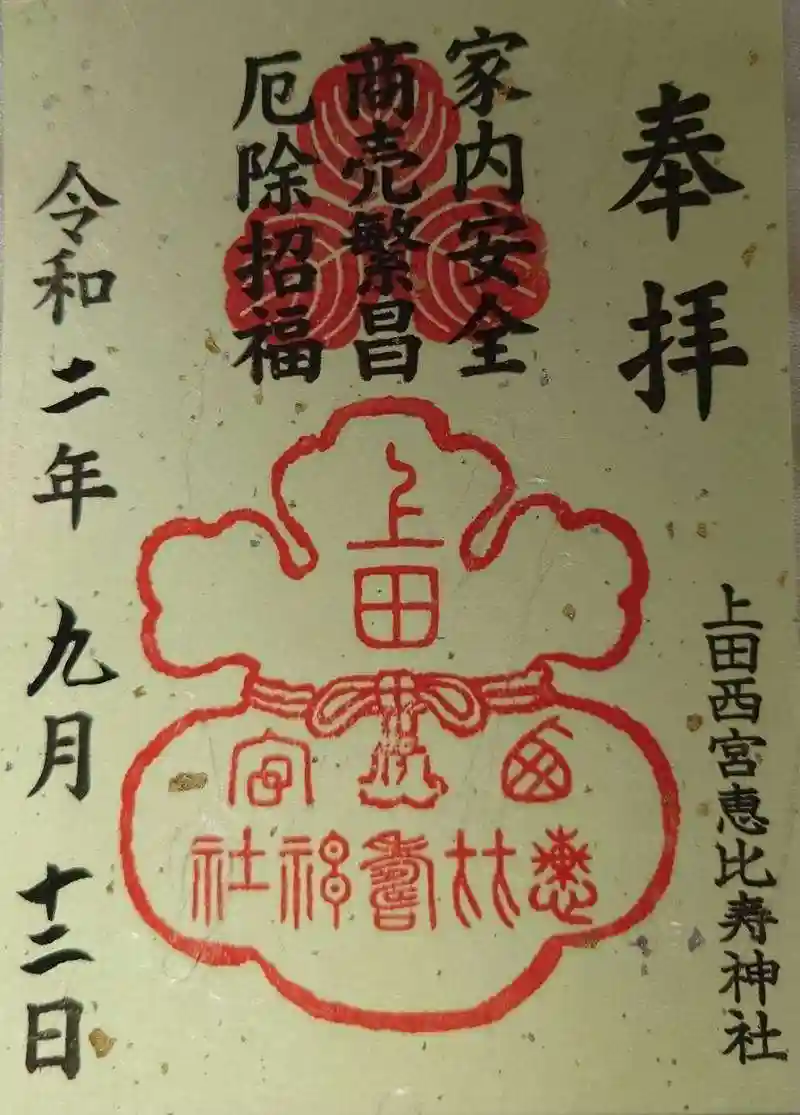 奉拝
上田西宮恵比寿神社
家内安全
商売繁昌
厄除招福
上田
西宮
恵比寿神社
令和二年 九月 十二日